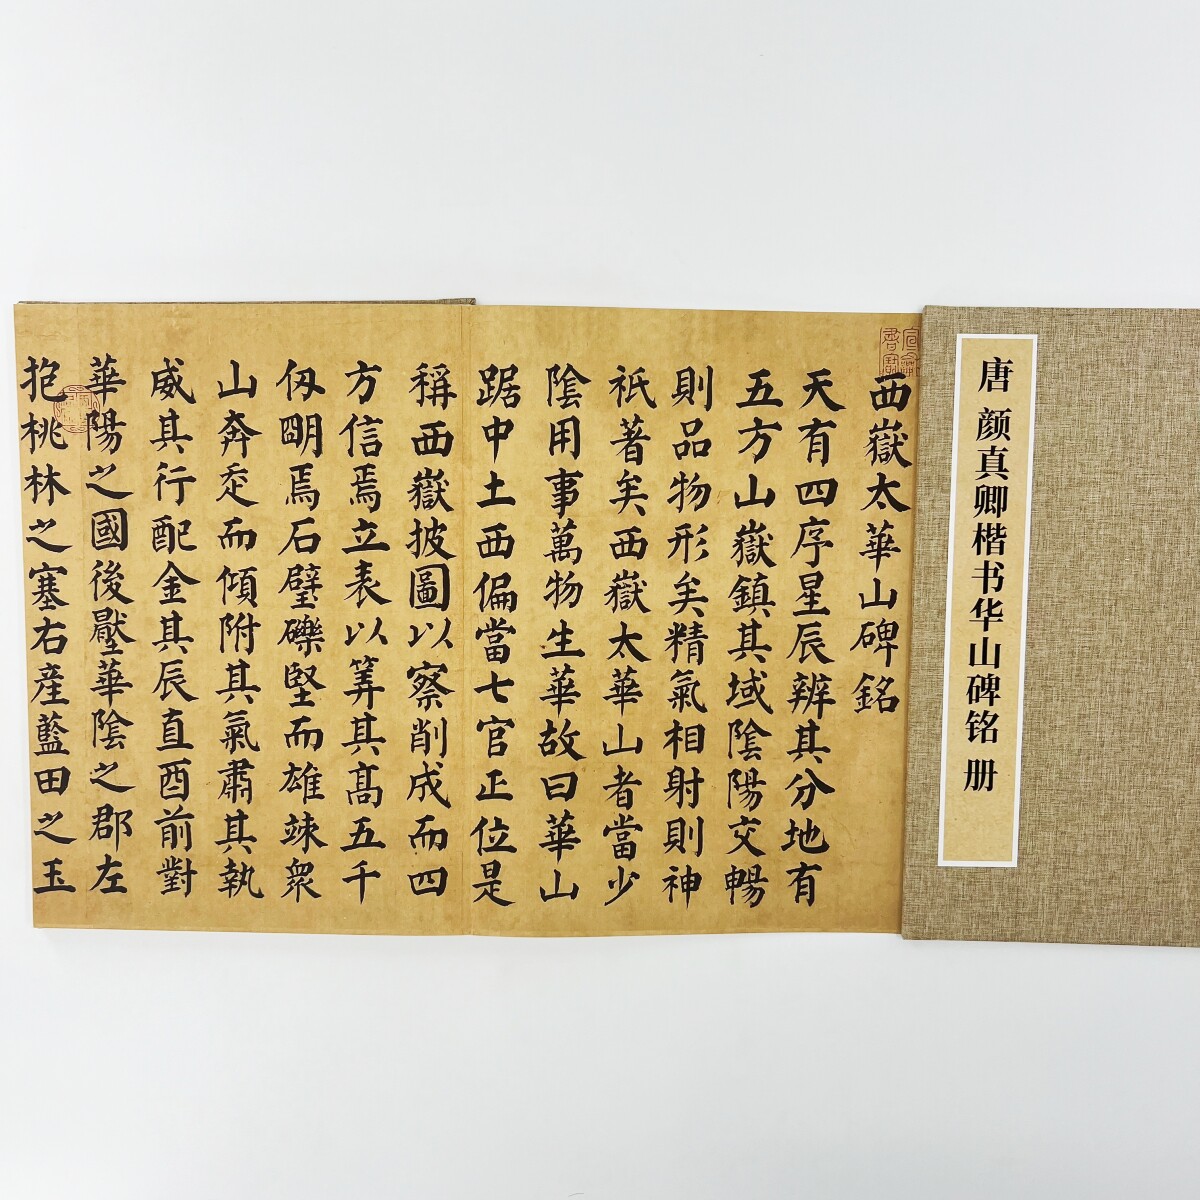 唐 颜真卿楷书华山碑铭 册
西嶽太華山碑銘
天有四序星辰辨其分地有
五方山嶽鎮其域陰陽交暢
則品物形矣精氣相射則神
祇著矣西嶽太華山者當少
陰用事萬物生華故曰華山
踞中土西偏當七官正位是
稱西嶽披圖以察削成而四
方信焉立表以筭其高五千
仭明焉石壁礫堅而雄竦眾
山奔走而傾附其氣肅其執
威其行配金其辰直酉前對
華陽之國後壓華陰之郡左
抱桃林之塞右產藍田之玉